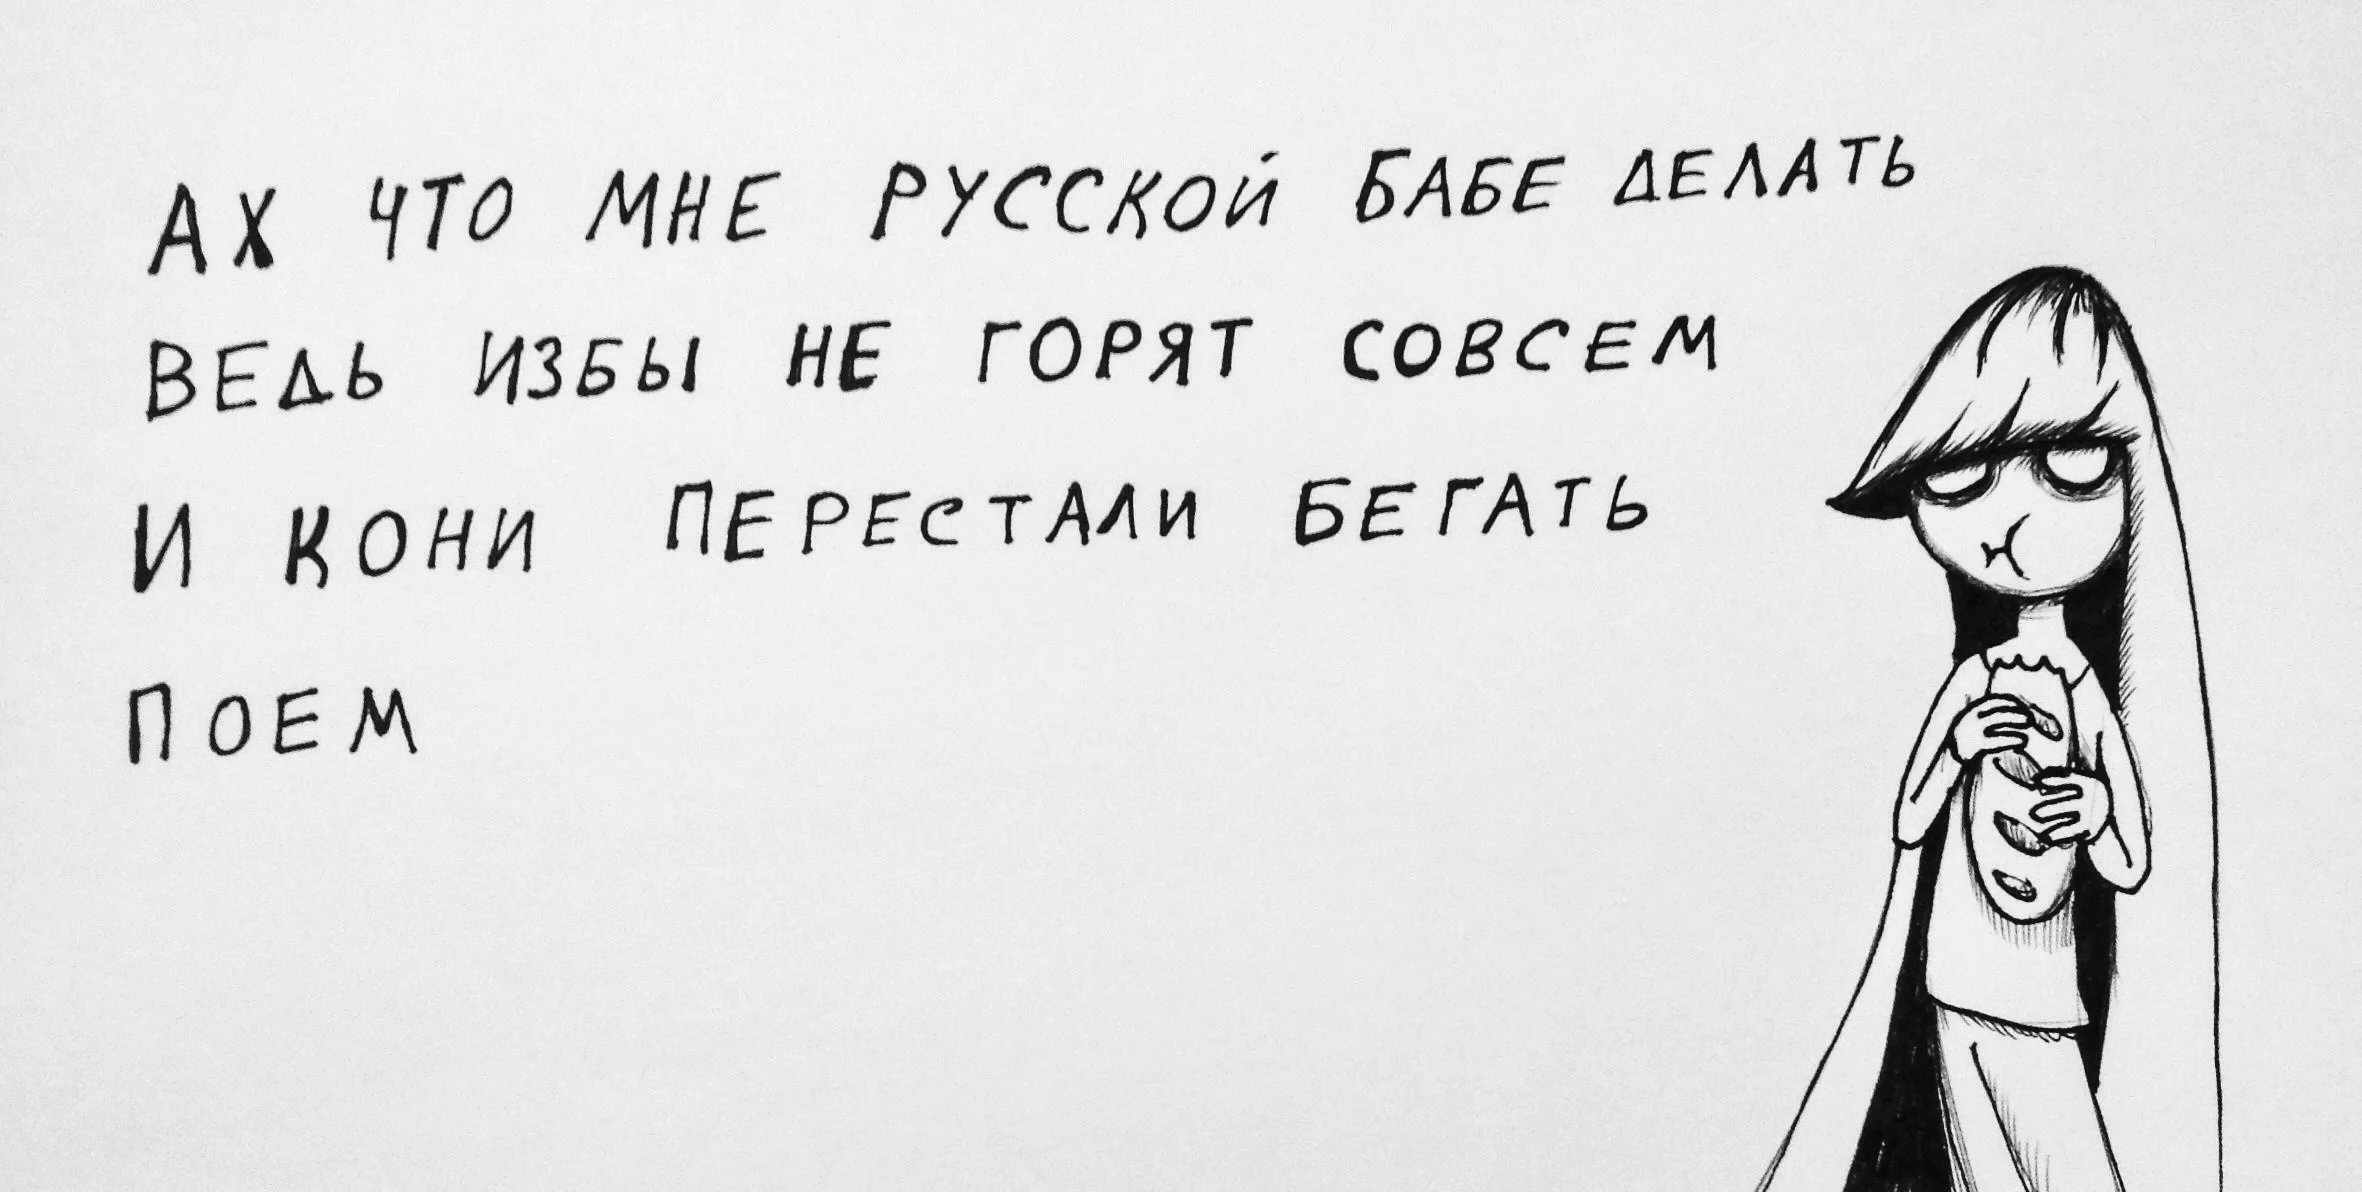 АХ ЧТО МНЕ РУССКОЙ БАБЕ ДЕЛАТЬ
ВЕДЬ ИЗБЫ НЕ ГОРЯТ СОВСЕМ
И КОНИ ПЕРЕСТАЛИ БЕГАТЬ
ПОЕМ